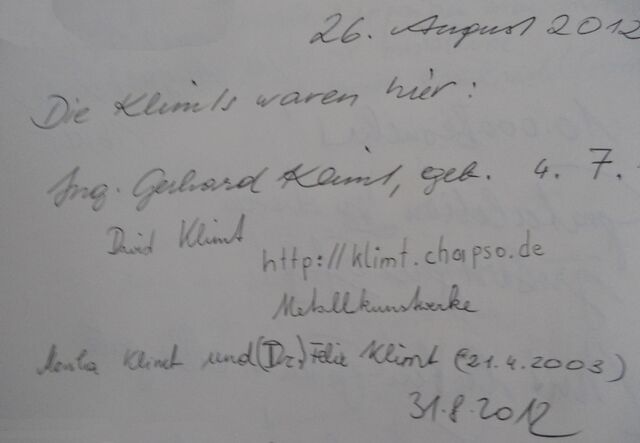 26. August 2012
Die Klimts waren hier:
Ing. Gerhard Klimt, geb. 4. 7.
David Klimt
http://klimt.chapso.de
Metallkunstwerke
Klimt und (Dr.) Felix Klimt (21.4.2003)
31.8.2012